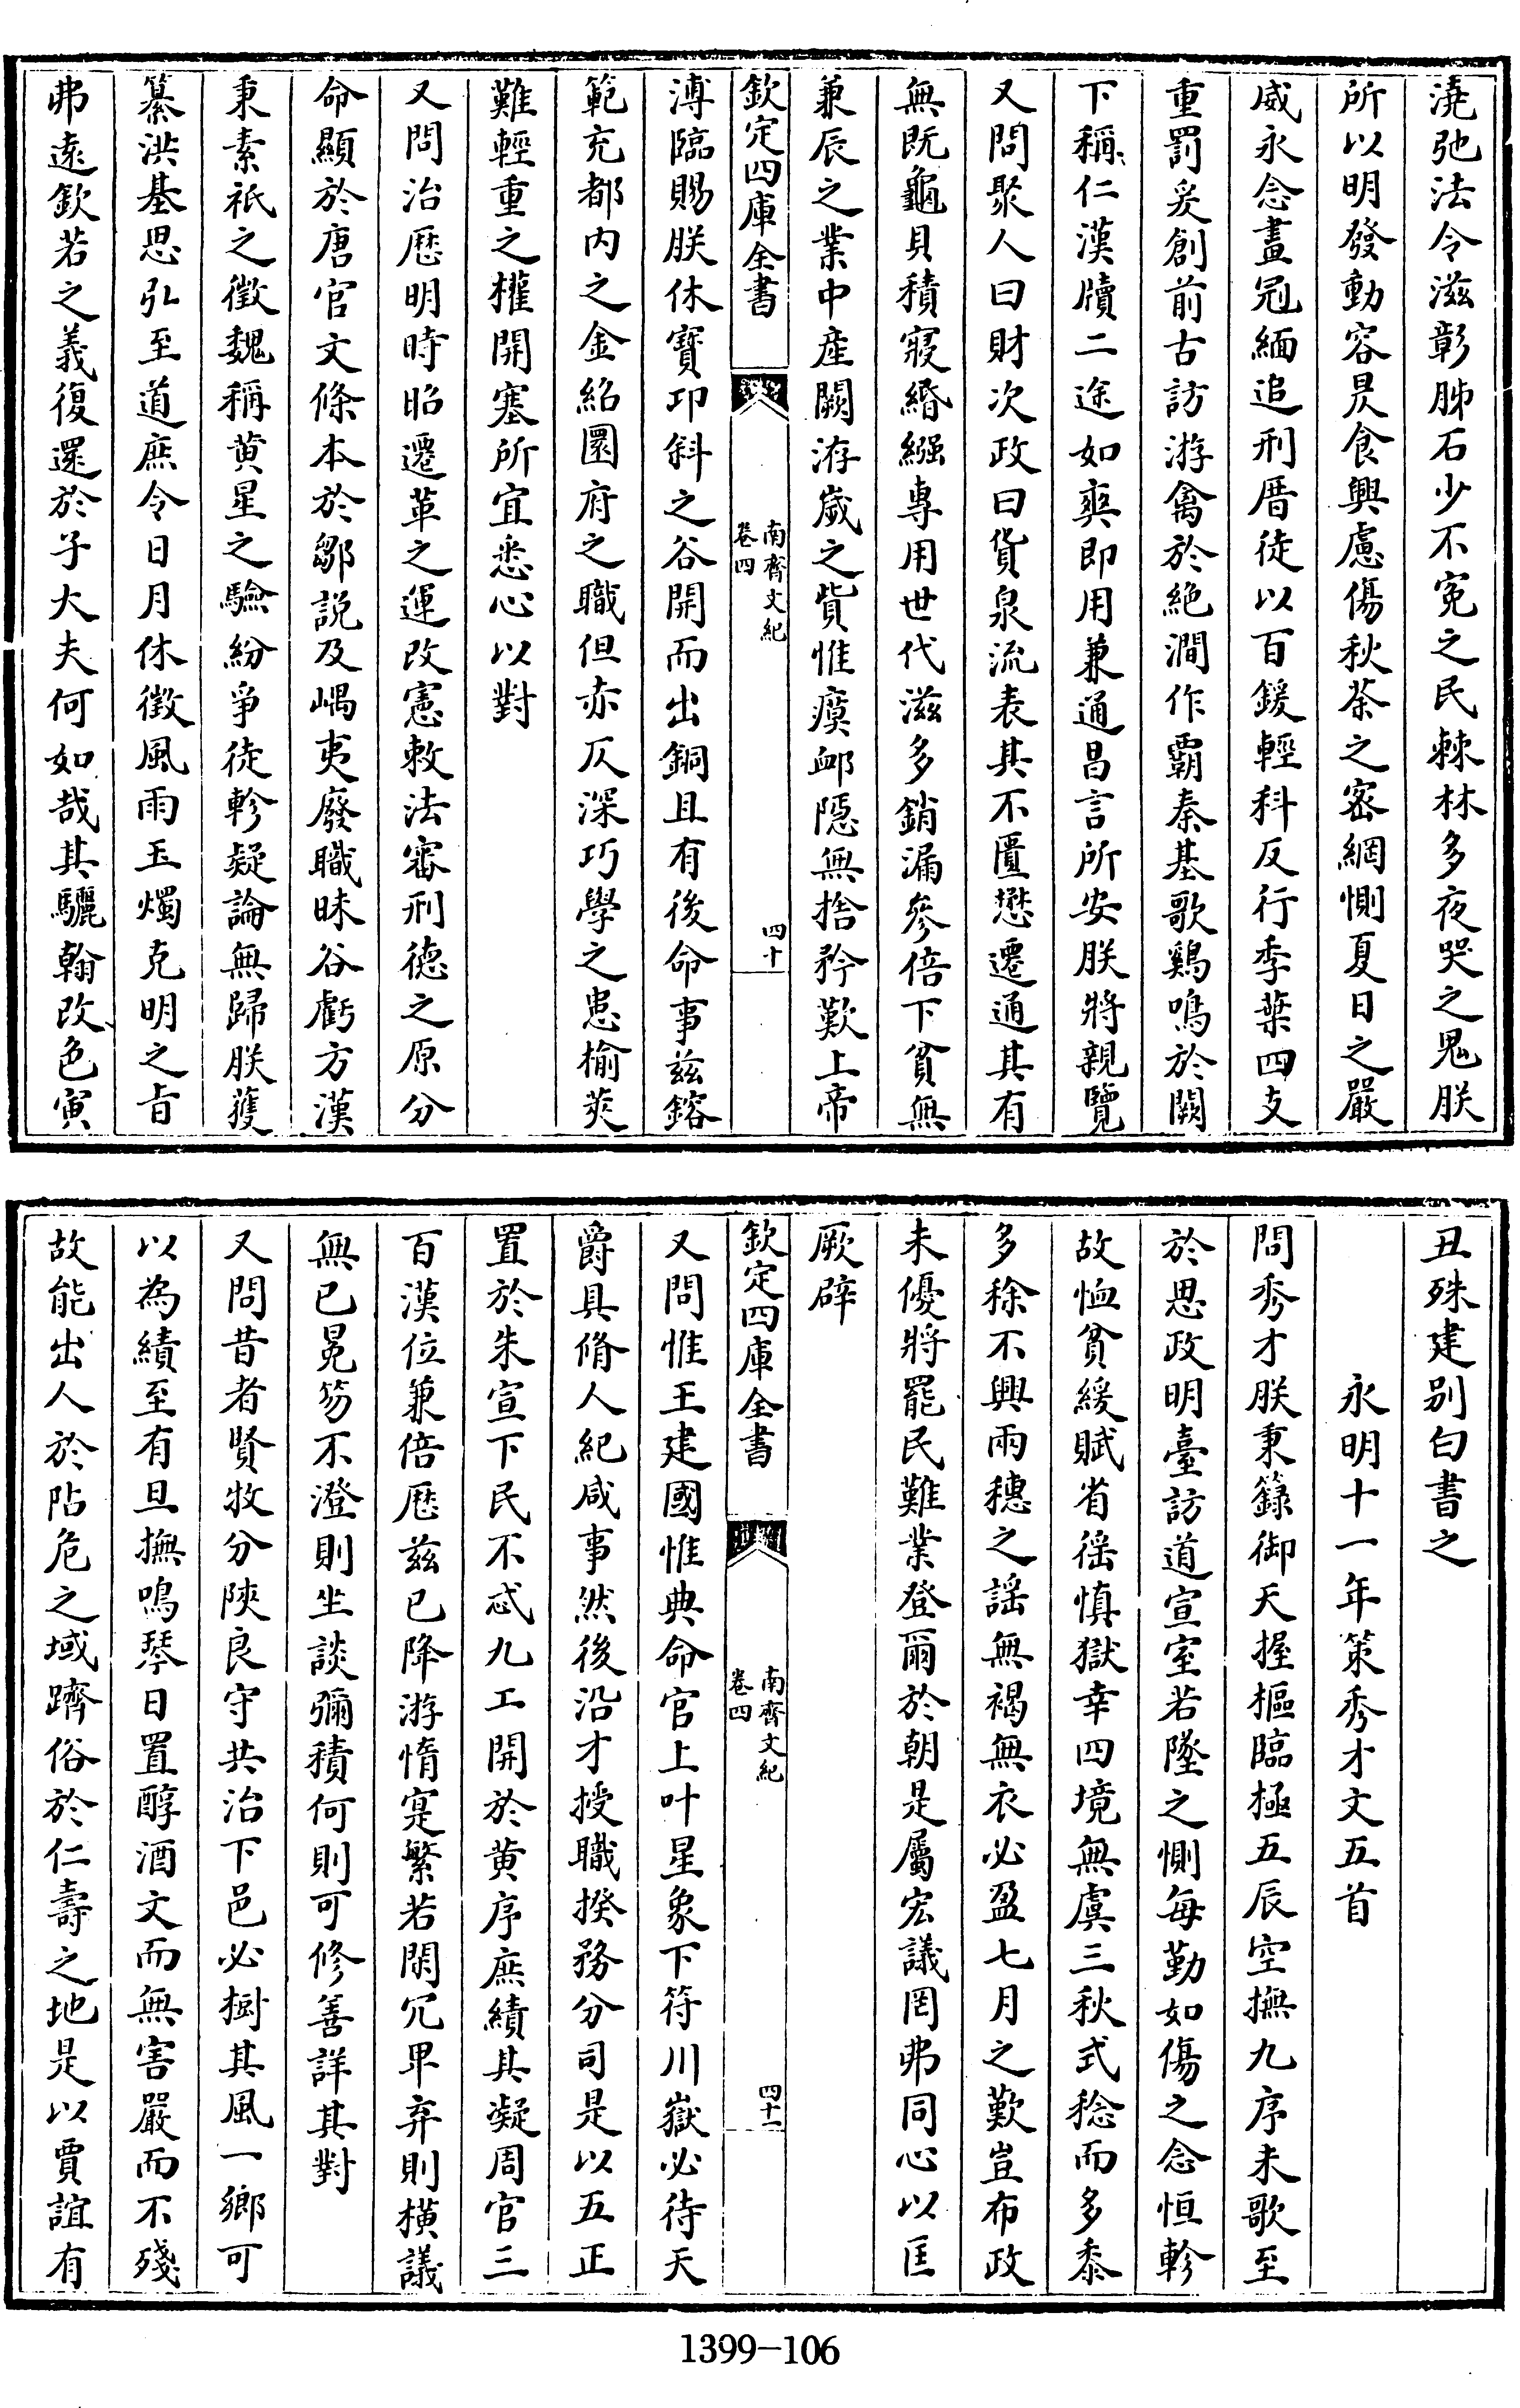 澆弛法令滋彰肺石少不冤之民棘林多夜哭之鬼朕
所以明發動容昃食興慮傷秋荼之密網惻夏日之嚴
威永念畫冠緬追刑厝徒以百鍰輕科反行季葉四支
重罰爰創前古訪游禽於絶澗作霸秦基歌鷄鳴於闕
下稱仁漢牘二途如爽即用兼通昌言所安朕將親覽
又問聚人曰財次政曰貨泉流表其不匱懋遷通其有
無既龜貝積寢緡繦專用世代滋多銷漏參倍下貧無
兼辰之業中産闕洊歲之貲惟瘼卹隠無捨矜歎上帝
欽定四庫全書
南齊文紀
卷四
四十
溥臨賜朕休寶卭斜之谷開而出銅且有後命事兹鎔
範充都内之金紹圜府之職但赤仄深巧學之患榆莢
難輕重之權開塞所宜悉心以對
又問治厯明時昭遷革之運改憲敕法審刑德之原分
命顯於唐官文條本於鄒説及嵎夷廢職昧谷虧方漢
秉素祇之徵魏稱黄星之驗紛爭徒軫疑論無歸朕獲
纂洪基思弘至道庶令日月休徵風雨玉燭克明之旨
弗逺欽若之義復還於子大夫何如哉其驪翰改色寅
丑殊建别白書之
永明十一年策秀才文五首
問秀才朕秉籙御天握樞臨極五辰空撫九序未歌至
於思政明臺訪道宣室若墜之惻每勤如傷之念恒軫
故恤貧緩賦省徭慎獄幸四境無虞三秋式稔而多黍
多稌不興兩穗之謡無褐無衣必盈七月之歎豈布政
未優將罷民難業登爾於朝是屬宏議罔弗同心以匡
厥辟
欽定四庫全書
南齊文紀
卷四
四十一
又問惟王建國惟典命官上叶星象下符川嶽必待天
爵具脩人紀咸事然後沿才授職揆務分司是以五正
置於朱宣下民不忒九工開於黄序庶績其凝周官三
百漢位兼倍厯兹已降游惰寔繁若閑冗畢弃則横議
無已冕笏不澄則坐談彌積何則可修善詳其對
又問昔者賢牧分陜良守共治下邑必樹其風一鄉可
以為績至有旦撫鳴琴日置醇酒文而無害嚴而不殘
故能出人於阽危之域躋俗於仁壽之地是以賈誼有
1399-106